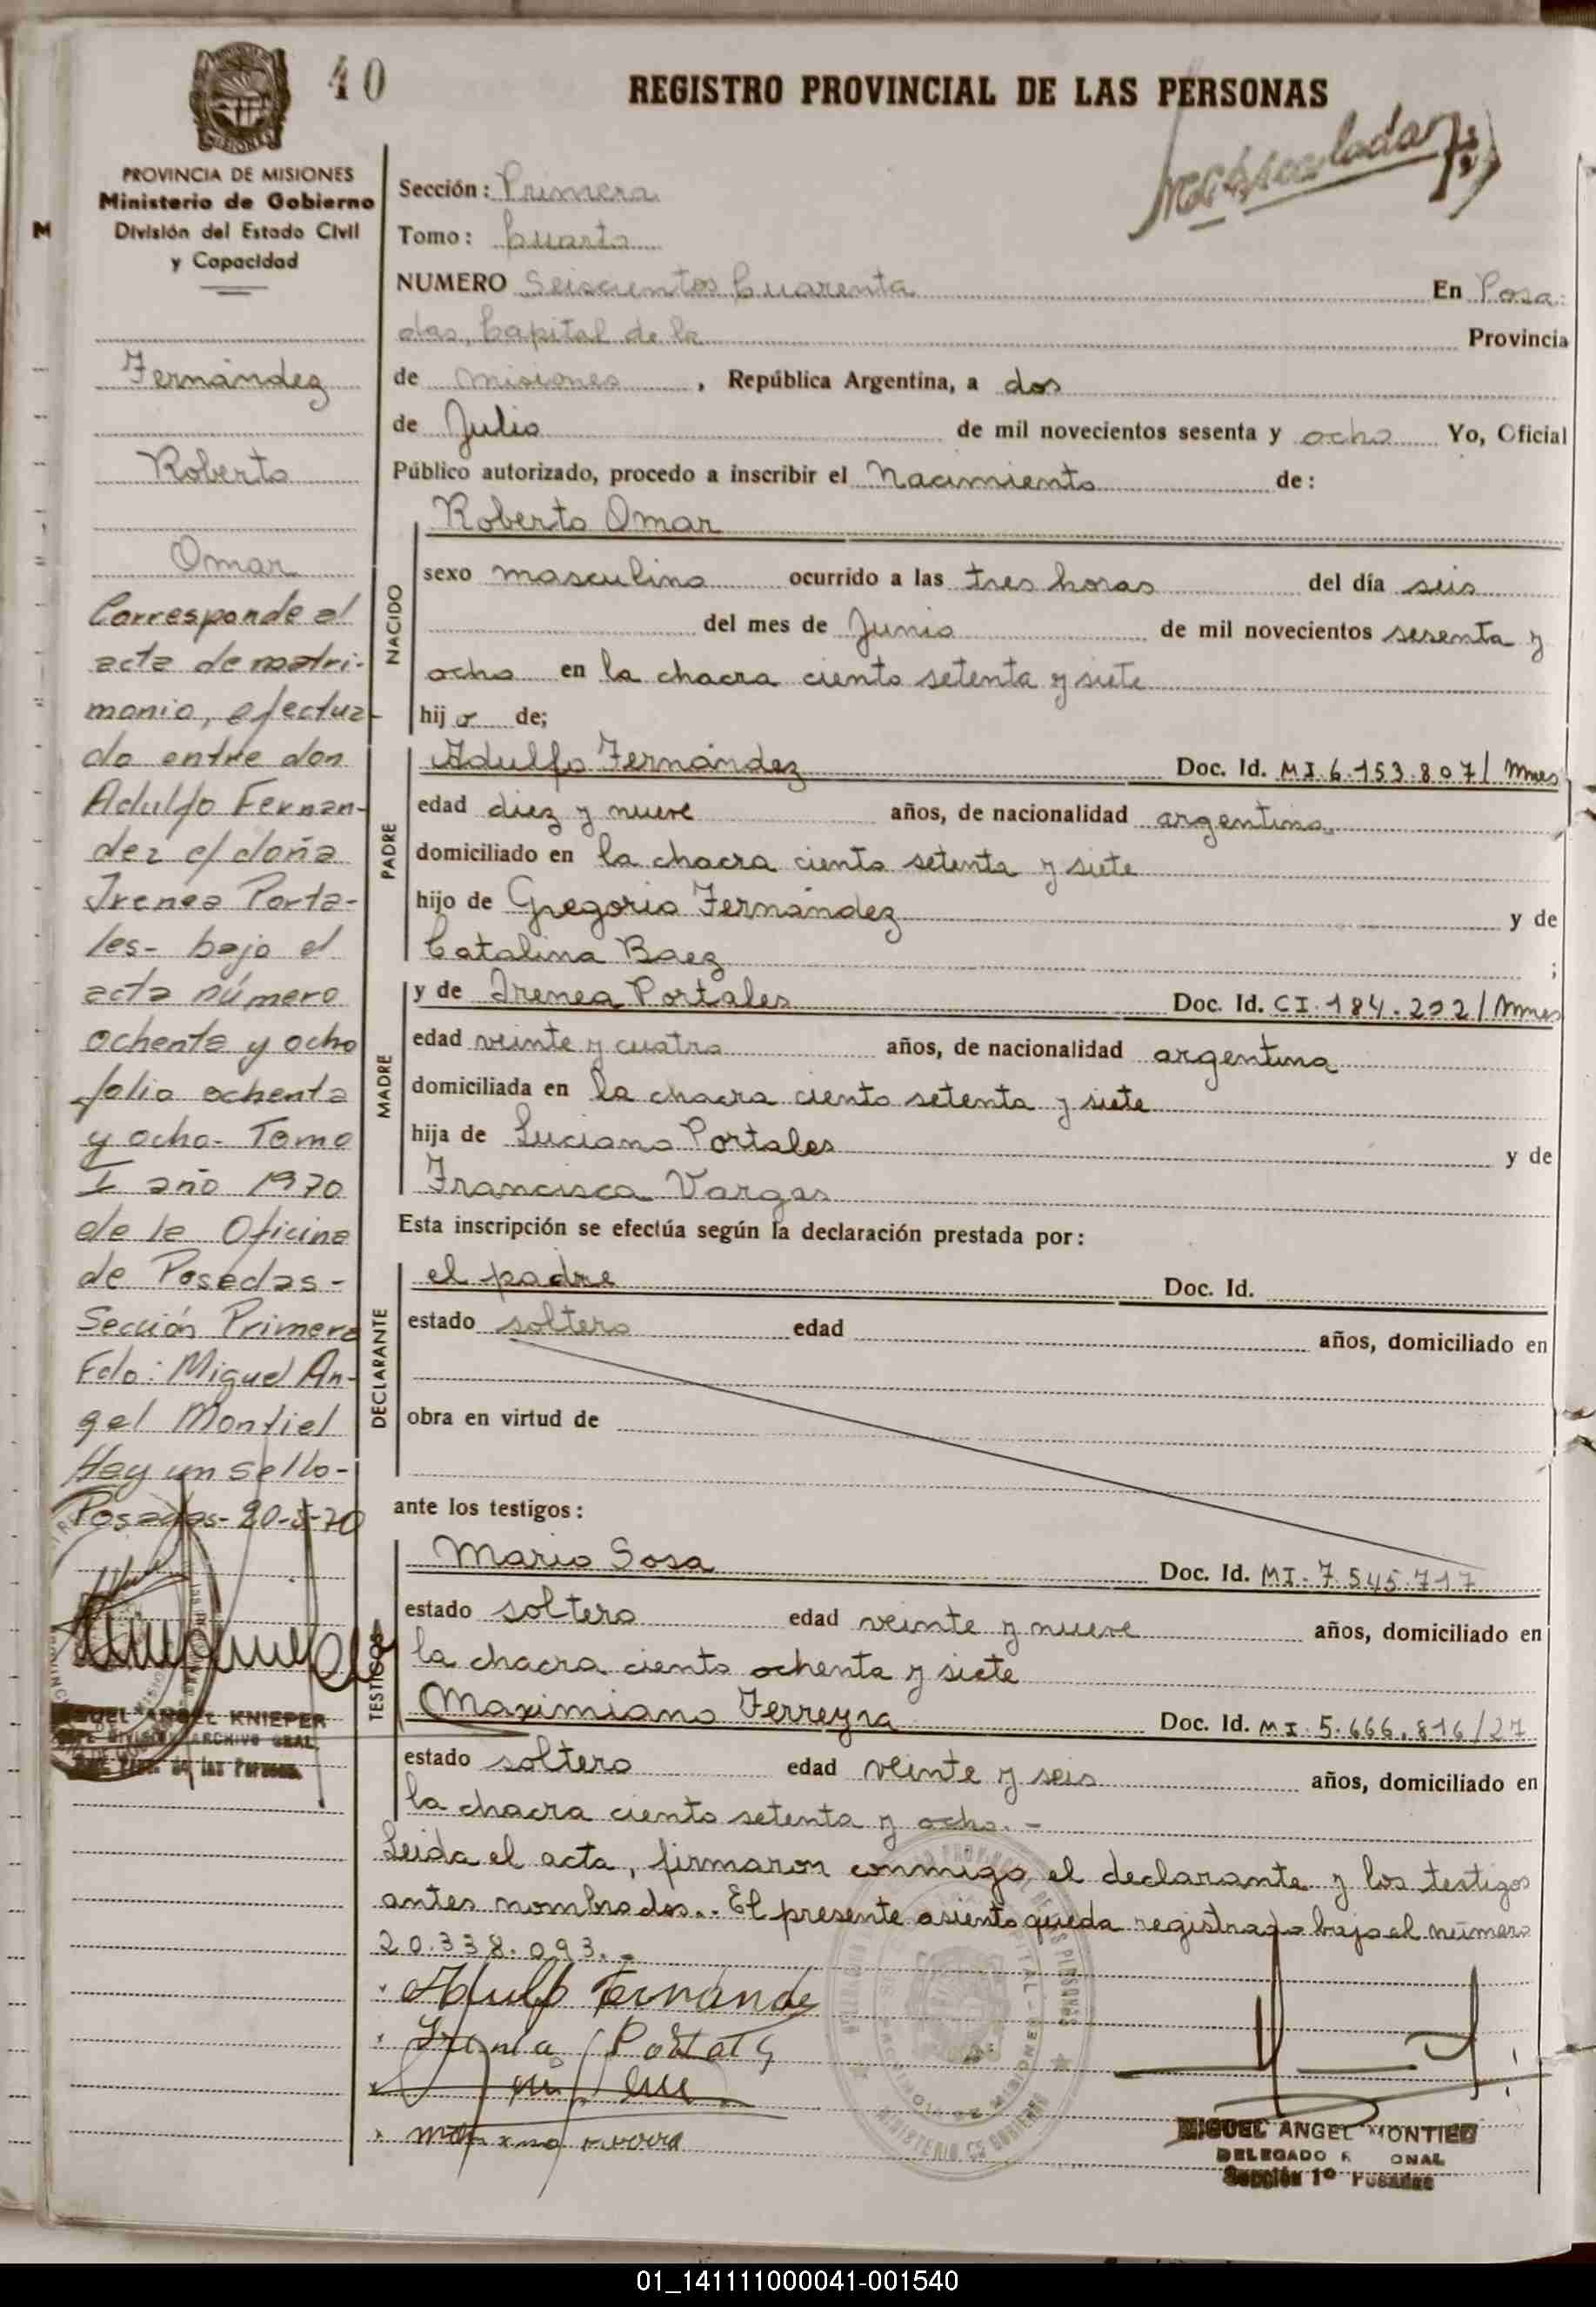 40
REGISTRO PROVINCIAL DE LAS PERSONAS
MISIONES
PROVINCIA DE MISIONES
Ministerio de Gobierno
División del Estado Civil
y Capacidad
M
Fernández
Roberto
Omar
Corresponde al
acta de matri-
monio, efectua-
do entre don
Adulfo Fernan-
dez c/ doña
Irenea Porta-
les- bajo el
acta número
ochenta y ocho
folio ochenta
y ocho- Tomo
I año 1970
de la Oficina
de Posadas-
Sección Primera
Fdo: Miguel An-
gel Montiel
Hay un sello-
Posadas- 20-5-70
MIGUEL ANGEL KNIEPER
JEFE DIVISION ARCHIVO GRAL.
de las Personas
Sección: Primera
Tomo: Cuarto
NUMERO Seiscientos Cuarenta En Posa-
das, Capital de la Provincia
de Misiones, República Argentina, a dos
de Julio de mil novecientos sesenta y ocho Yo, Oficial
Público autorizado, procedo a inscribir el Nacimiento de:
NACIDO
Roberto Omar
sexo masculino ocurrido a las tres horas del día seis
del mes de Junio de mil novecientos sesenta y
ocho en la chacra ciento setenta y siete
hijo de;
PADRE
Adulfo Fernández Doc. Id. MI.6.153.807/Mnes
edad diez y nueve años, de nacionalidad argentina
domiciliado en la chacra ciento setenta y siete
hijo de Gregorio Fernández y de
Catalina Baez ;
MADRE
y de Irenea Portales Doc. Id. CI.184.202/Mnes
edad veinte y cuatro años, de nacionalidad argentina
domiciliada en la chacra ciento setenta y siete
hija de Luciano Portales y de
Francisca Vargas
Esta inscripción se efectúa según la declaración prestada por:
DECLARANTE
el padre Doc. Id.
estado soltero edad años, domiciliado en
obra en virtud de
ante los testigos:
TESTIGOS
Mario Sosa Doc. Id. MI-7.545.717
estado soltero edad veinte y nueve años, domiciliado en
la chacra ciento ochenta y siete
Maximiano Ferreyra Doc. Id. MI.5.666.816/27
estado soltero edad veinte y seis años, domiciliado en
la chacra ciento setenta y ocho.-
Leida el acta, firmaron conmigo, el declarante y los testigos
antes nombrados.- El presente asiento queda registrado bajo el número
20.338.093.-
Adulfo Fernandez
MIGUEL ANGEL MONTIEL
DELEGADO
Sección 1º Posadas
01_141111000041-001540